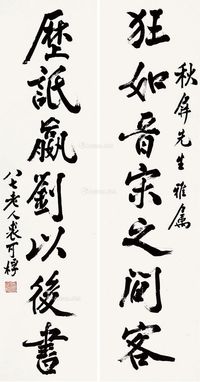 秋屏先生雅属
狂如晋宋之間客
歷詆嬴劉以後書
八七老人裘可桴